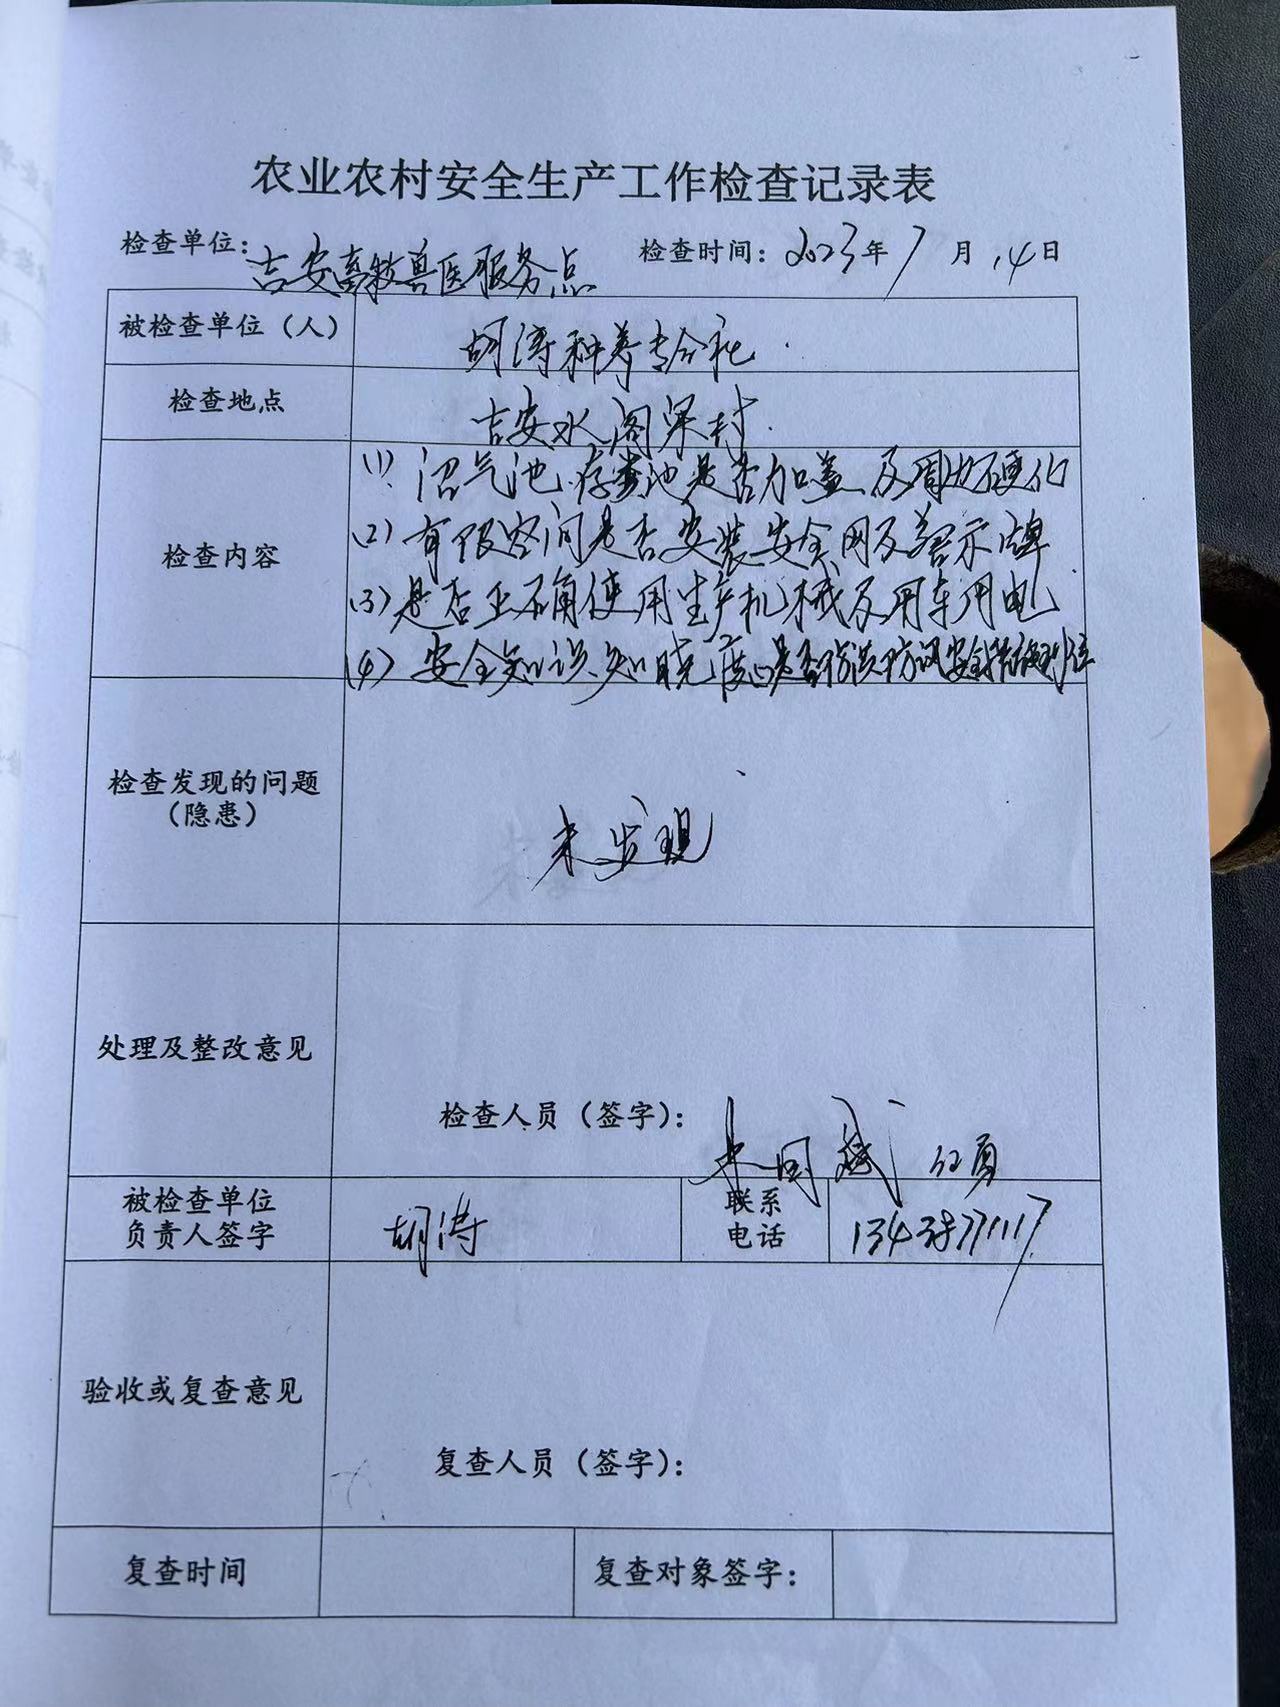 农业农村安全生产工作检查记录表
检查单位：吉安畜牧兽医服务点 检查时间：2023年7月14日
被检查单位（人） 胡涛种养专合社
检查地点 吉安水阁梁村
检查内容
(1) 沼气池、存粪池是否加盖及周边硬化
(2) 有限空间是否安装安全网及警示牌
(3) 是否正确使用生产机械及用车用电
(4) 安全知识知晓度 是否防洪防汛安全措施到位
检查发现的问题
（隐患）
未发现
处理及整改意见
检查人员（签字）：
被检查单位
负责人签字
胡涛
联系
电话
验收或复查意见
复查人员（签字）：
复查时间 复查对象签字：